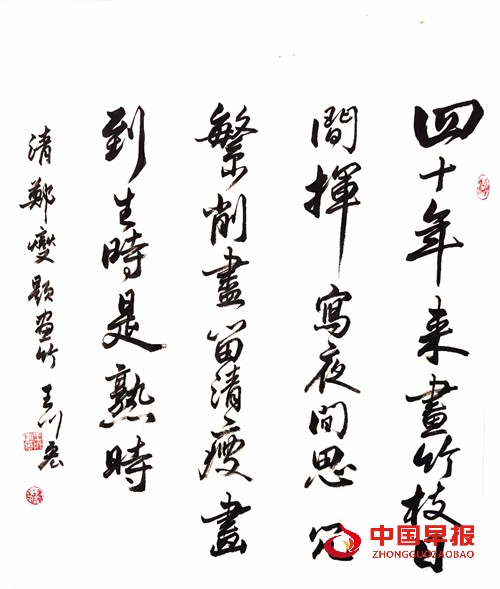 四十年来畫竹枝日
間揮寫夜間思冗
繁削盡留清瘦畫
到生時是熟時
清鄭燮題畫竹 王川
中国早报
ZHONGGUOZAOBAO